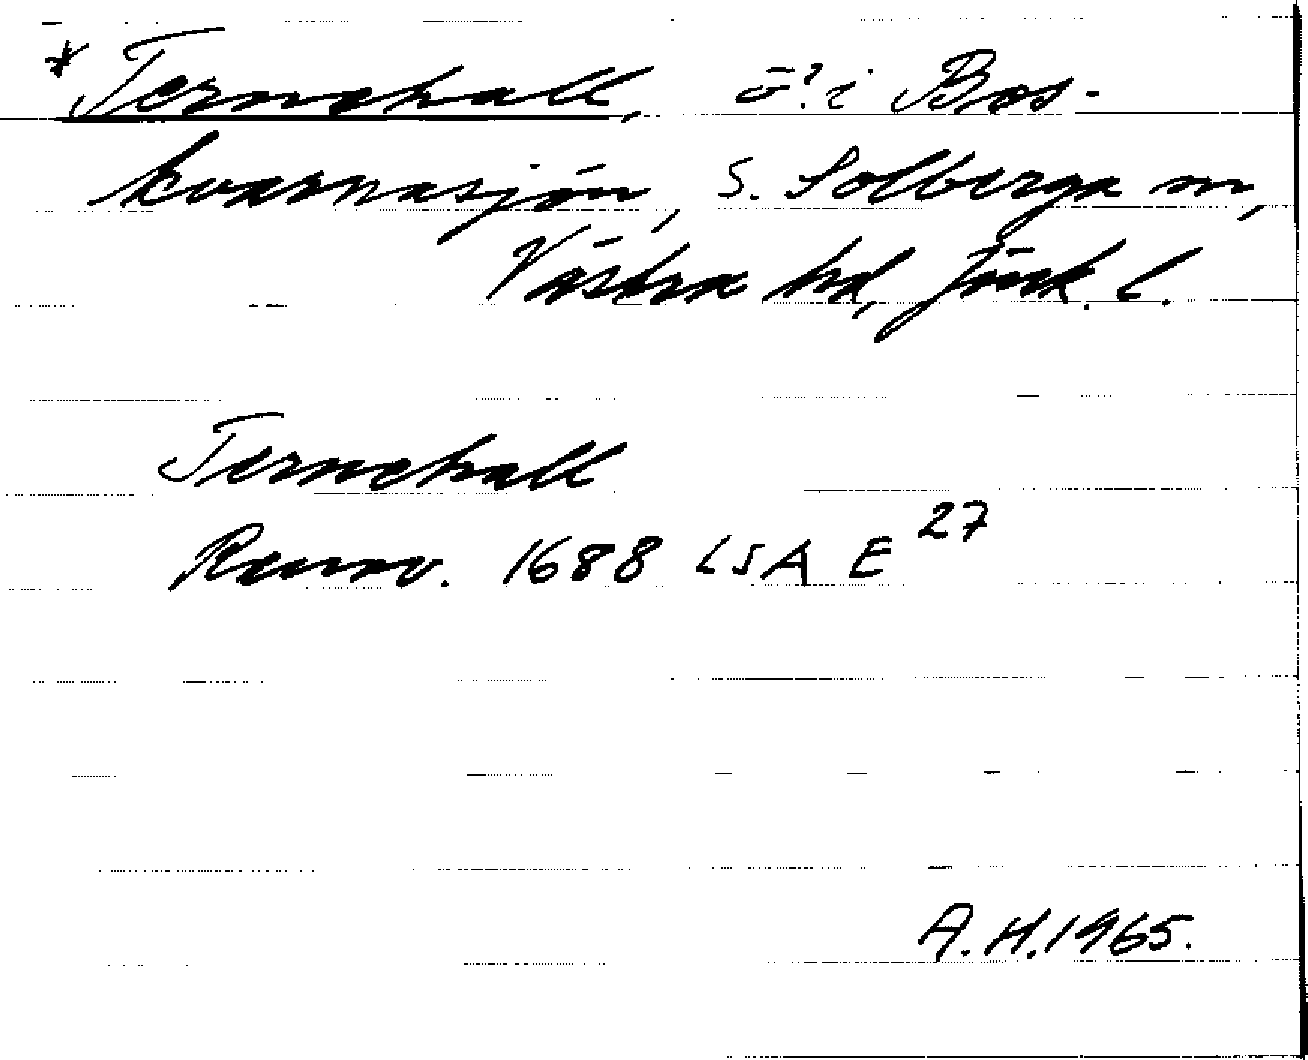 * Ternehall, ö? i Bos-
kvarnasjön, S. Solberga sn,
Västra hd, Jönk. l.
Ternehall
Rannv. 1688 LSA E 27
A.H. 1965.